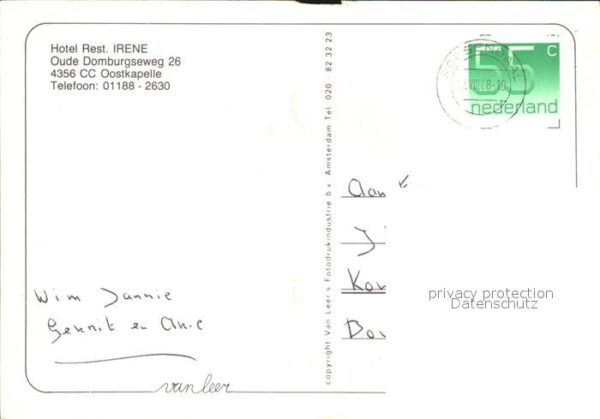 Hotel Rest. IRENE
Oude Domburgseweg 26
4356 CC Oostkapelle
Telefoon: 01188 - 2630
55 c
nederland
copyright Van Leer's Fotodrukindustrie b.v. Amsterdam Tel. 020 82 32 23
Aan
J
Kon
Bo
privacy protection
Datenschutz
Wim Jannie
Gerrit en Anie
van leer